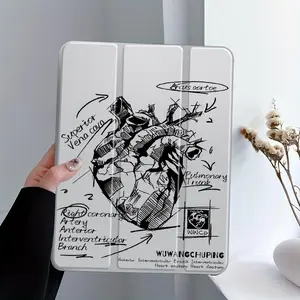 Arcus aortae
Superior
Vena cava
Pulmonary
Trunk
Right coronary
Artery
Anterior
Interventricular
Branch
WUWANGCHUPING